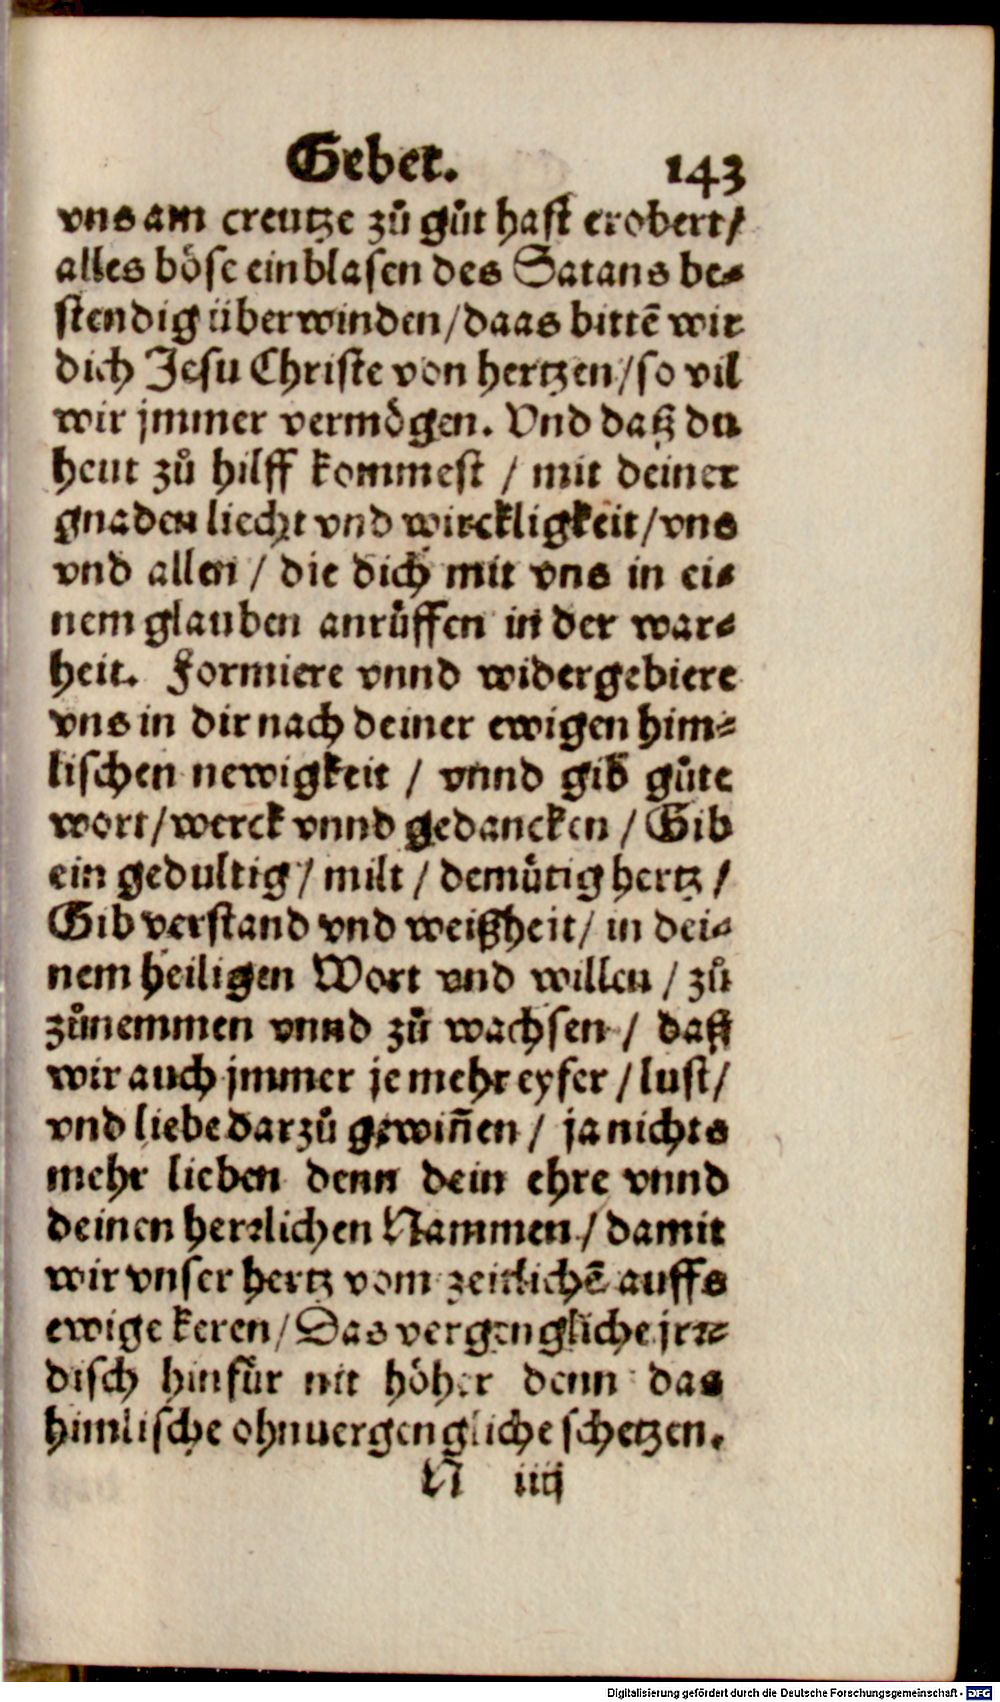 Gebet. 143
vns am creutze zů gůt hast erobert/
alles böse einblasen des Satans be⸗
stendig überwinden/daas bittē wir
dich Jesu Christe von hertzen/so vil
wir jmmer vermögen. Vnd daß du
heut zů hilff kommest / mit deiner
gnaden liecht vnd wirckligkeit/vns
vnd allen / die dich mit vns in ei⸗
nem glauben anrůffen in der war⸗
heit. Formiere vnnd widergebiere
vns in dir nach deiner ewigen him⸗
lischen newigkeit / vnnd gib gůte
wort/werck vnnd gedancken / Gib
ein gedultig / milt / demůtig hertz /
Gib verstand vnd weißheit/ in dei⸗
nem heiligen Wort vnd willen / zů
zůnemmen vnnd zů wachsen / daß
wir auch jmmer je mehr eyfer / lust/
vnd liebe darzů gewiñen / ja nichts
mehr lieben denn dein ehre vnnd
deinen herꝛlichen Nammen / damit
wir vnser hertz vom zeitlichē auffs
ewige keren/Das vergengliche jrꝛ⸗
disch hinfür nit höher denn das
himlische ohnuergengliche schetzen.
N iiij
Digitalisierung gefördert durch die Deutsche Forschungsgemeinschaft - DFG